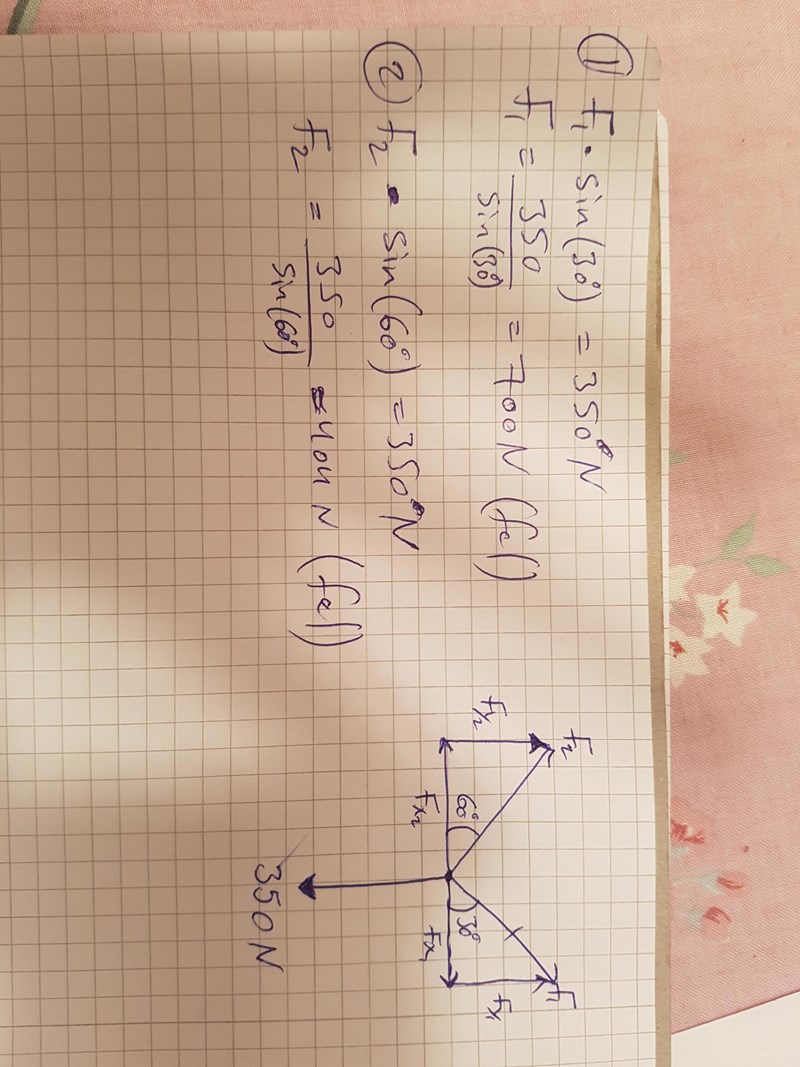 ① F₁ • sin(30°) = 350 N
F₁ = 350 / sin(30°) = 700 N (fel)
② F₂ • sin(60°) = 350 N
F₂ = 350 / sin(60°) = 404 N (fel)
F₂
Fy₂
60°
Fx₂
F₁
30°
Fx₁
350 N